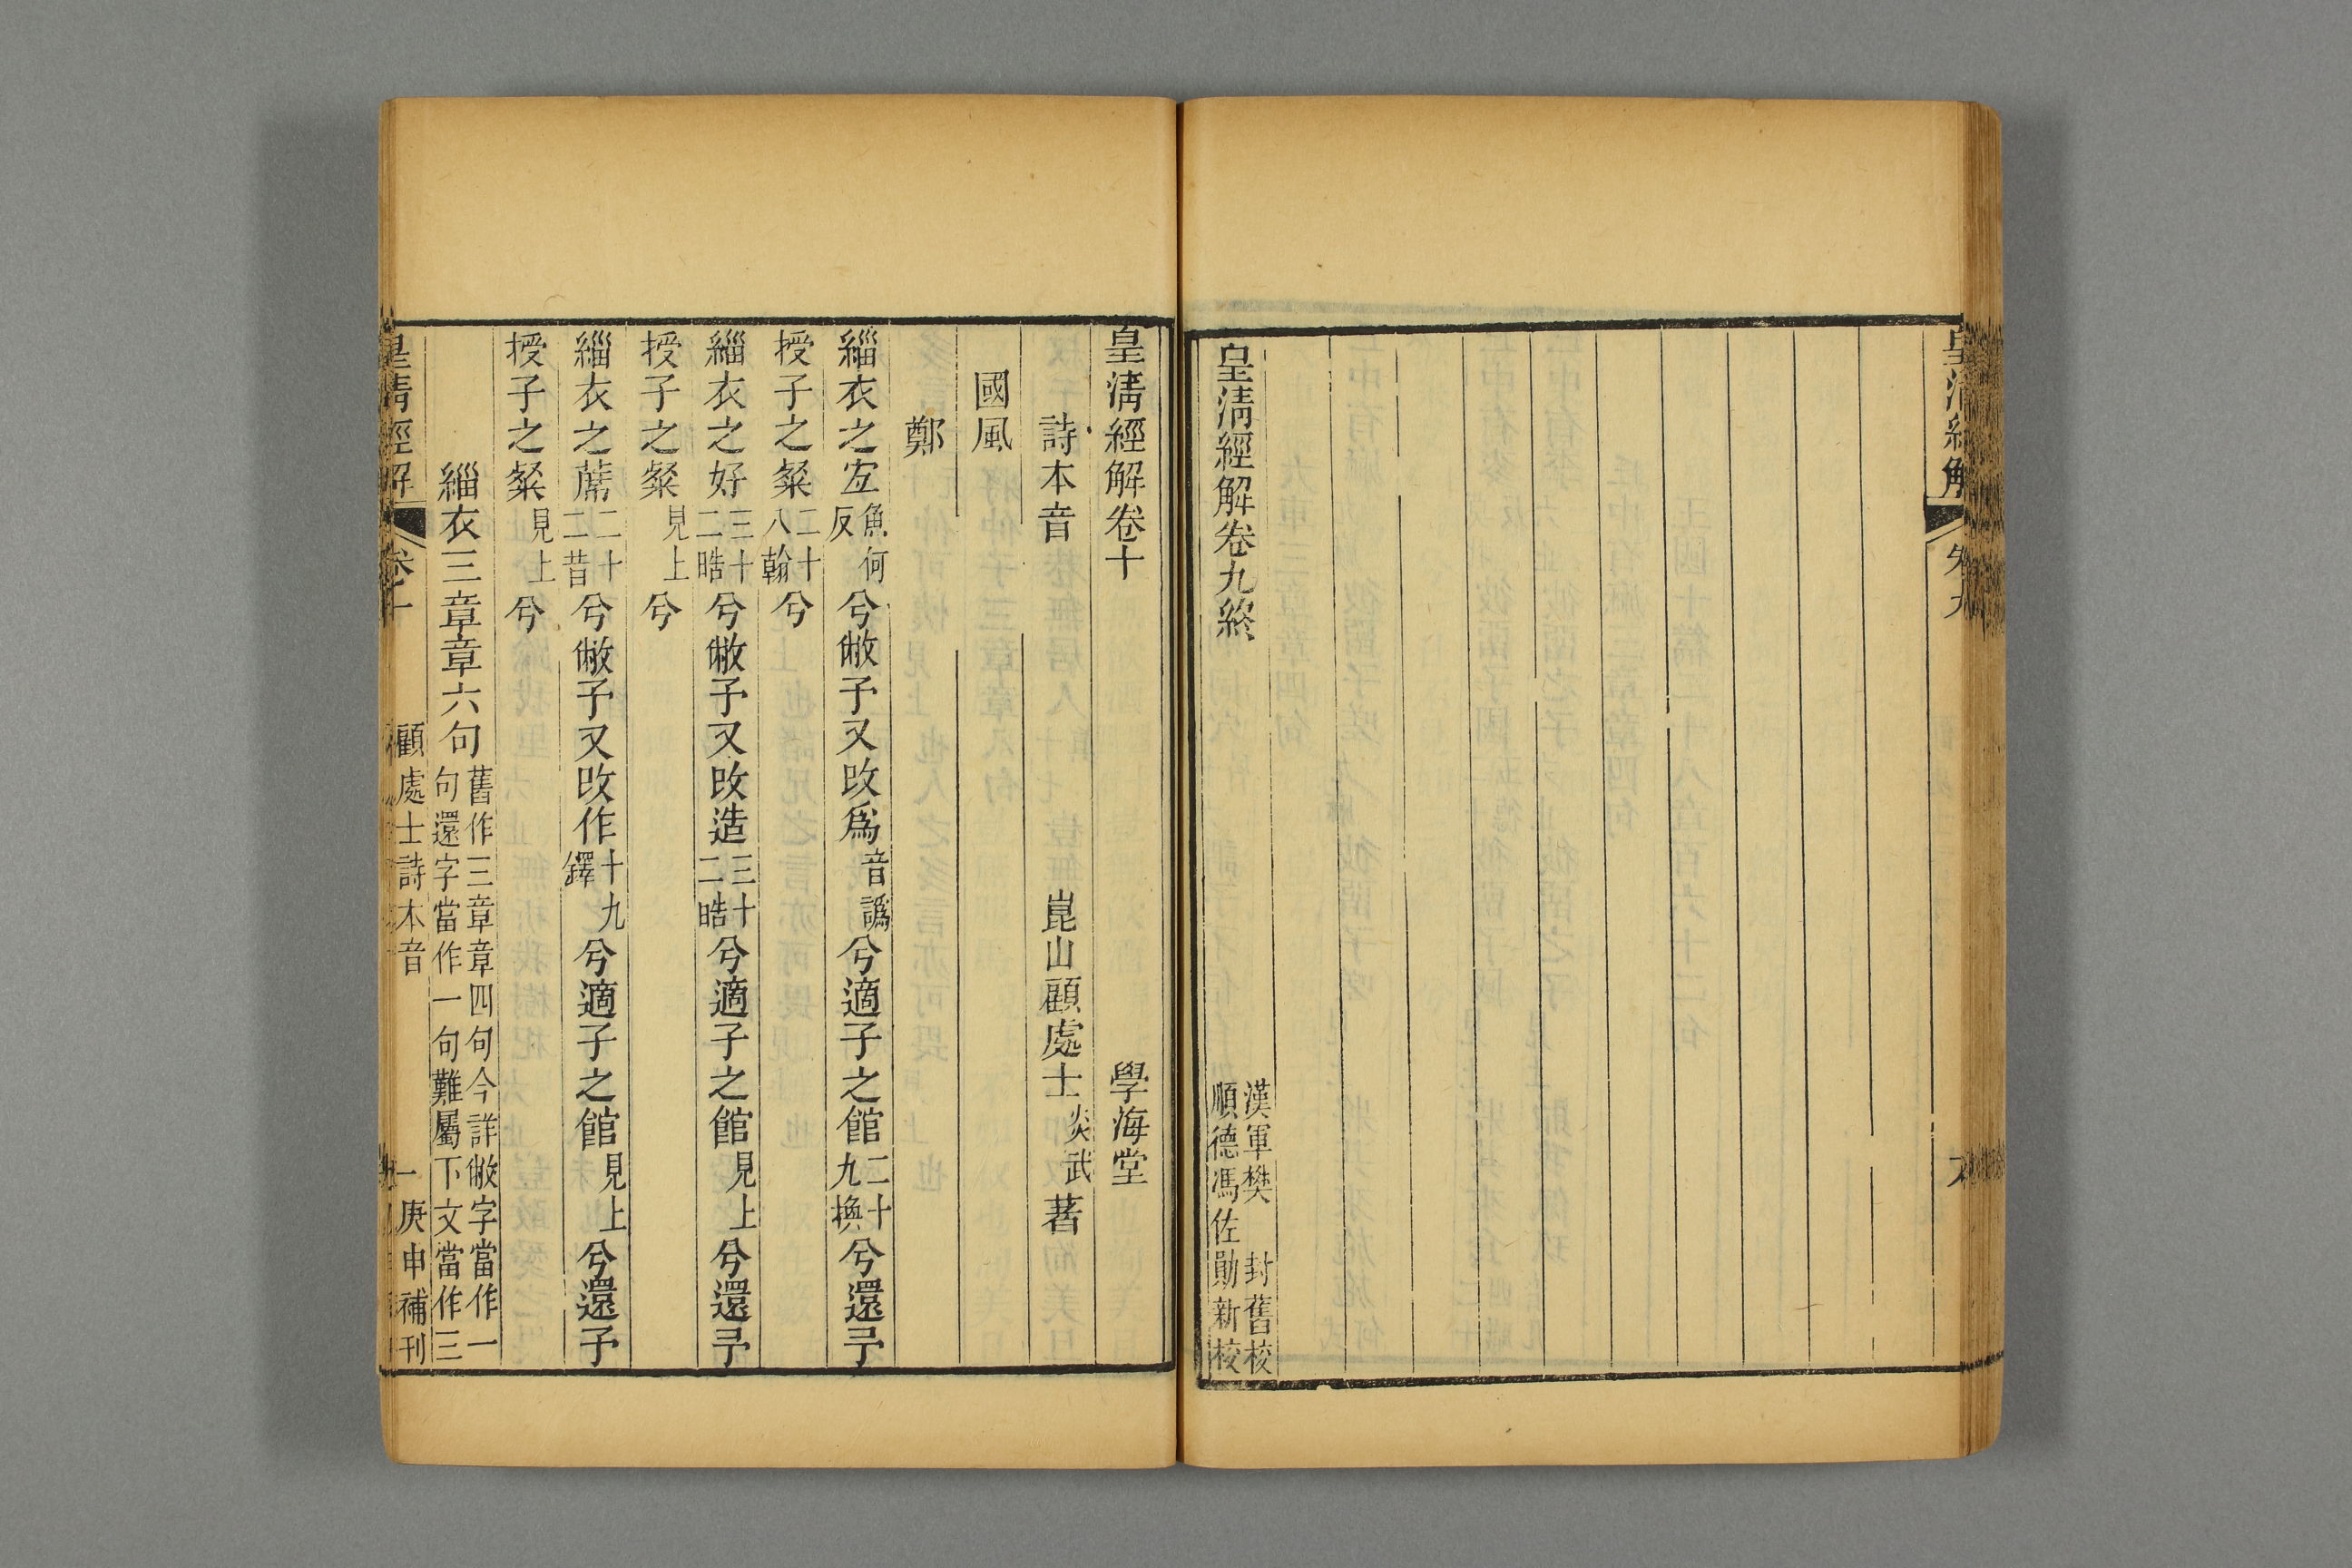 皇清經解
卷九
皇清經解卷九終
漢軍樊　封舊校
順德馮佐勛新校
皇清經解卷十
學海堂
詩本音
崑山顧處士炎武著
國風
鄭
緇衣之宐魚何反兮敝子又改爲音譌兮適子之館二十九換兮還予
授子之粲二十八翰兮
緇衣之好三十二晧兮敝子又改造三十二晧兮適子之館見上兮還予
授子之粲見上兮
緇衣之蓆二十二昔兮敝子又改作十九鐸兮適子之館見上兮還予
授子之粲見上兮
緇衣三章章六句舊作三章章四句今詳敝字當作一句還字當作一句難屬下文當作三
皇清經解
卷十
顧處士詩本音
一
庚申補刊